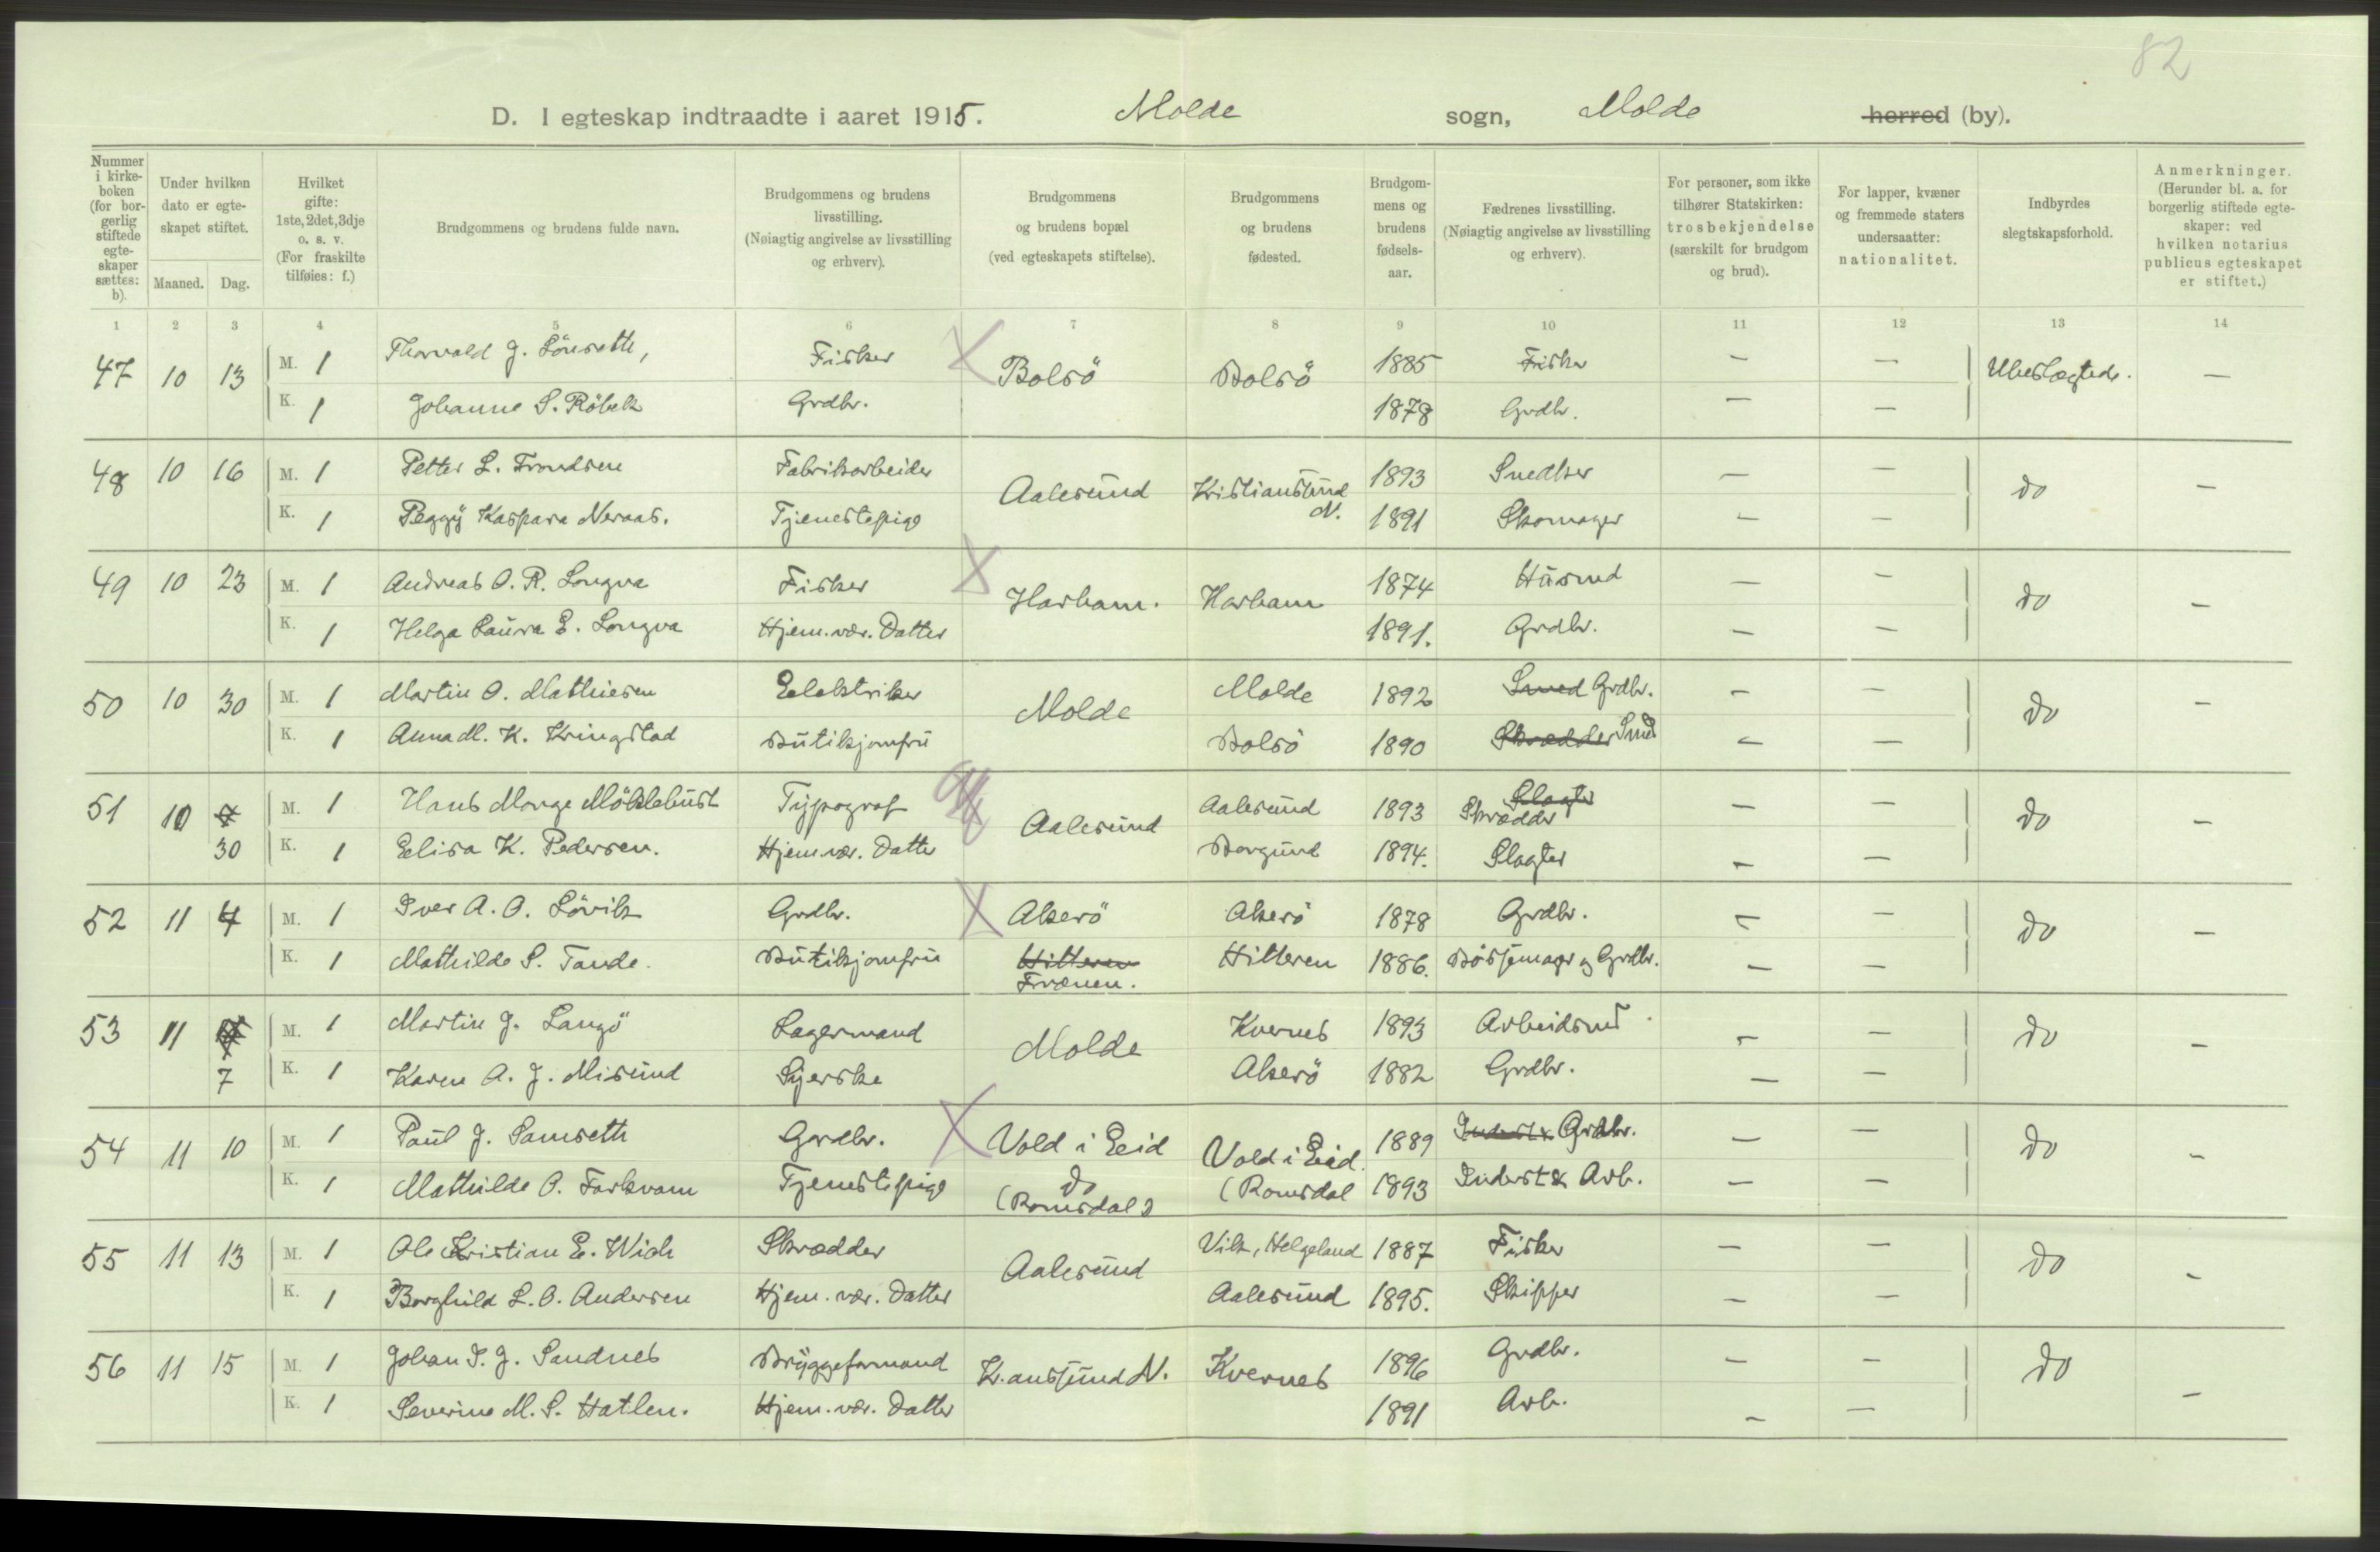 82
D. I egteskap indtraadte i aaret 1915. Molde sogn, Molde herred (by).
Nummer i kirkeboken (for borgerlig stiftede egteskaper sættes: b).
Under hvilken dato er egteskapet stiftet.
Maaned. Dag.
Hvilket gifte: 1ste, 2det, 3dje o. s. v. (For fraskilte tilføies: f.)
Brudgommens og brudens fulde navn.
Brudgommens og brudens livsstilling. (Nøiagtig angivelse av livsstilling og erhverv).
Brudgommens og brudens bopæl (ved egteskapets stiftelse).
Brudgommens og brudens fødested.
Brudgommens og brudens fødselsaar.
Fædrenes livsstilling. (Nøiagtig angivelse av livsstilling og erhverv).
For personer, som ikke tilhører Statskirken: trosbekjendelse (særskilt for brudgom og brud).
For lapper, kvæner og fremmede staters undersaatter: nationalitet.
Indbyrdes slegtskapsforhold.
Anmerkninger. (Herunder bl. a. for borgerlig stiftede egteskaper: ved hvilken notarius publicus egteskapet er stiftet.)
1 2 3 4 5 6 7 8 9 10 11 12 13 14
47 10 13 M. 1 Thorvald J. Lönseth, Fisker Bolsö Bolsö 1885 Fisker — — Ubeslægtede. —
K. 1 Johanne S. Röbek Grdbr. 1878 Grdbr. — —
48 10 16 M. 1 Petter L. Trondsen Fabrikarbeider Aalesund Kristiansund N. 1893 Snedker — — do —
K. 1 Peggy Kaspara Neraas. Tjenestepige 1891 Skomager — —
49 10 23 M. 1 Andreas O. R. Longva Fisker Harham. Harham 1874 Husmd — — do —
K. 1 Helga Laura E. Longva Hjem. vær. Datter 1891. Grdbr. — —
50 10 30 M. 1 Martin O. Mathiesen Elektriker Molde Molde 1892 Smed Grdbr. — — do —
K. 1 Anna M. K. Kringstad Butikjomfru Bolsö 1890 Skrædder Smed — —
51 10 30 M. 1 Hans Monge Möklebust Typograf Aalesund Aalesund 1893 Slagter Skrædder — — do —
K. 1 Elisa K. Pedersen. Hjem. vær. Datter Borgund 1894. Slagter — —
52 11 4 M. 1 Iver A. O. Lövik Grdbr. Akerö Akerö 1878 Grdbr. — — do —
K. 1 Mathilde S. Tande. Butikjomfru Hitteren Frænen. Hitteren 1886. Bössemager og Grdbr. — —
53 11 7 M. 1 Martin J. Langö Lagermand Molde Kvernes 1893 Arbeidsmd — — do —
K. 1 Karen A. J. Misund Syerske Akerö 1882 Grdbr. — —
54 11 10 M. 1 Paul J. Samseth Grdbr. Vold i Eid Vold i Eid. 1889 Inderst & Grdbr. — — do —
K. 1 Mathilde O. Farkvam Tjenestepige do (Romsdal) (Romsdal 1893 Inderst & Arb. — —
55 11 13 M. 1 Ole Kristian E. Wich Skrædder Aalesund Vik, Helgeland 1887 Fisker — — do —
K. 1 Borghild L. O. Andersen Hjem. vær. Datter Aalesund 1895. Skipper — —
56 11 15 M. 1 Johan P. J. Sandnes Bryggeformand Kr.ansund N. Kvernes 1896 Grdbr. — — do —
K. 1 Severine M. S. Hatlen. Hjem. vær. Datter 1891 Arb. — —